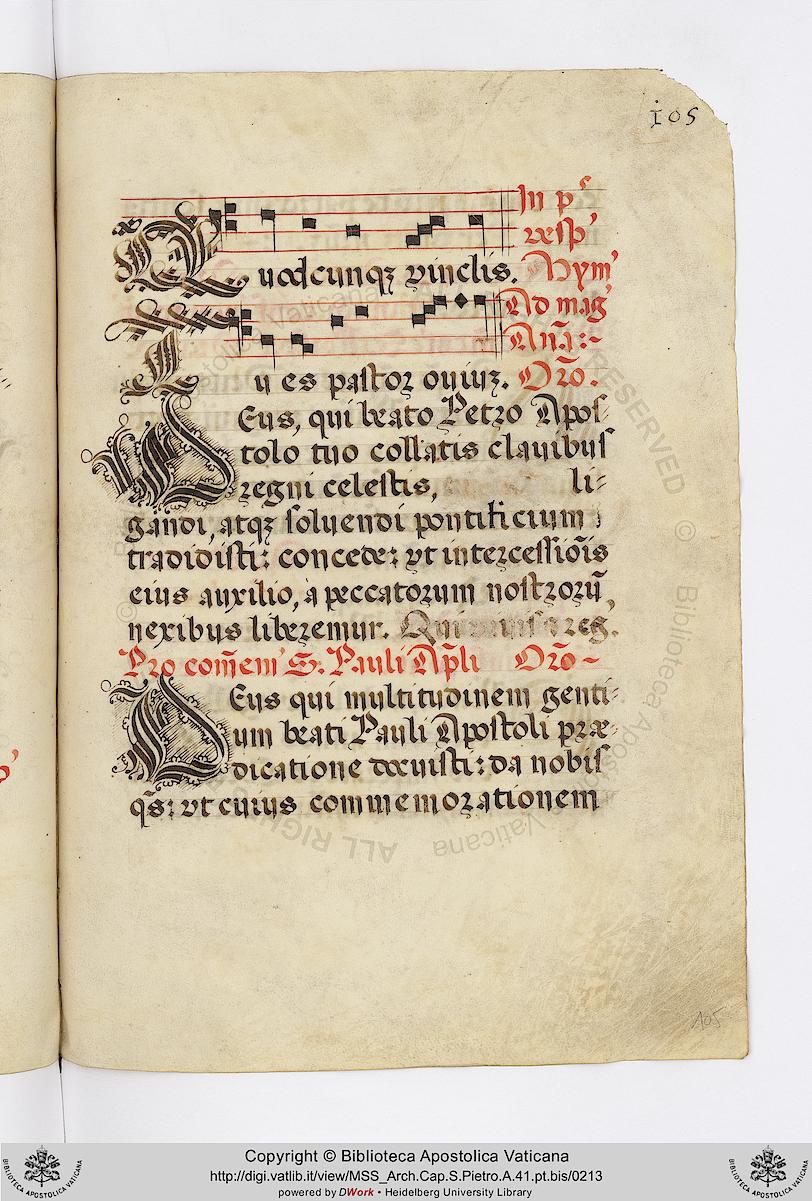 105
In p͛
vesp͛
Quodcunqꝫ vinclis. Hym͛
Ad mag͛
Aña:~
Tu es pastor ouiuꝫ. Orō.
Deus, qui beato Petro Apos-
tolo tuo collatis clauibus
regni celestis, li-
gandi, atqꝫ soluendi pontificium
tradidisti: concede: vt intercessiōis
eius auxilio, a peccatorum nostrorū,
nexibus liberemur. Qui viuis & reg.
Pro com̄em͛ S. Pauli Ap̄li Orō~
Deus qui multitudinem genti-
um beati Pauli Apostoli præ-
dicatione docuisti: da nobis
qs̄: vt cuius commemorationem
105
Copyright © Biblioteca Apostolica Vaticana
http://digi.vatlib.it/view/MSS_Arch.Cap.S.Pietro.A.41.pt.bis/0213
powered by DWork • Heidelberg University Library
BIBLIOTECA APOSTOLICA VATICANA
BIBLIOTECA APOSTOLICA VATICANA